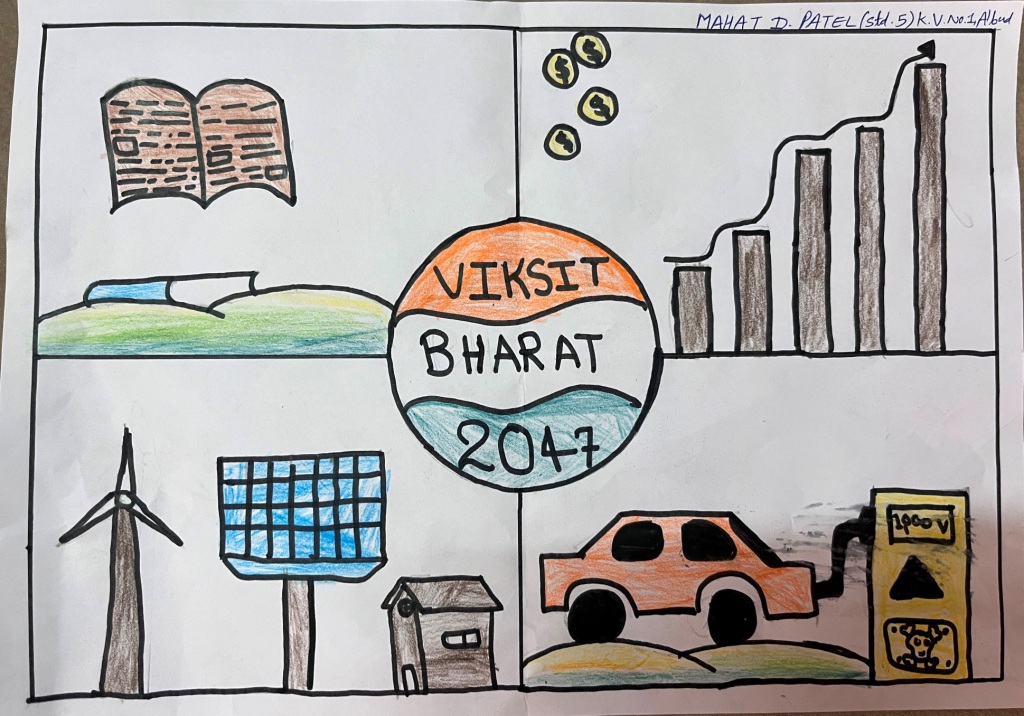 MAHAT D. PATEL (std. 5) K.V. No.1,
VIKSIT
BHARAT
2047
1000 V